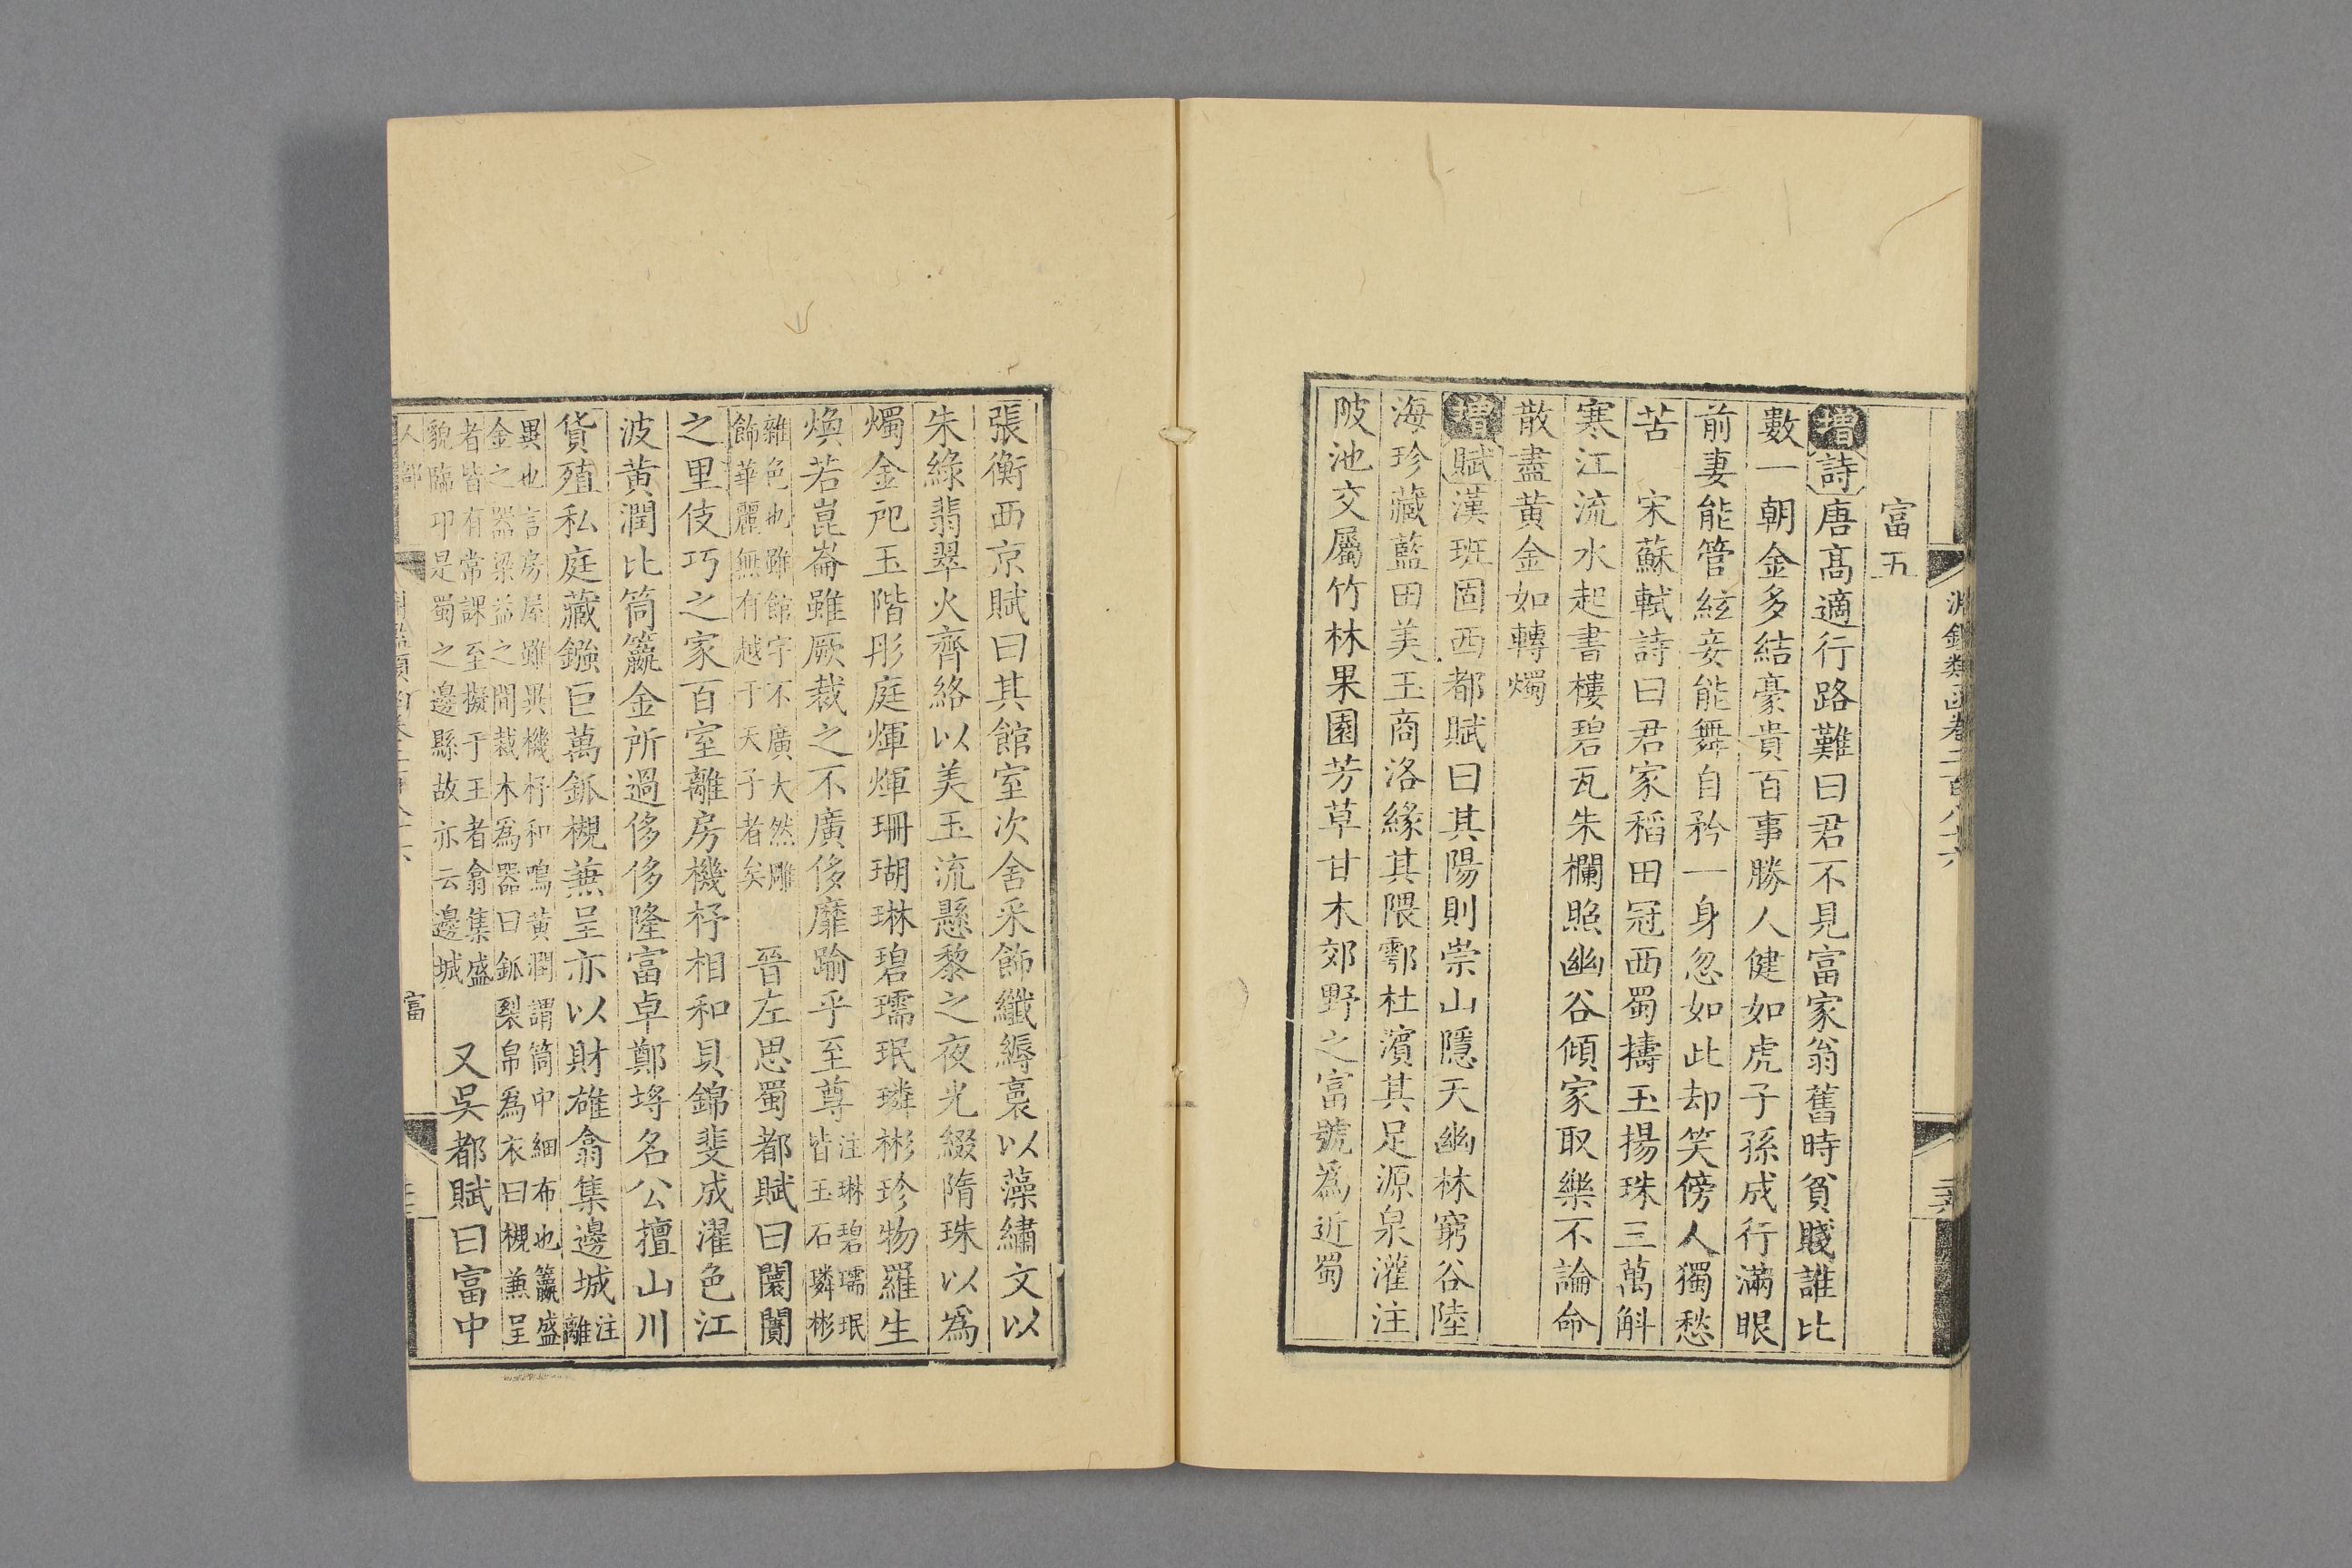 淵鑑類函卷二百八十六
富五
增詩唐高適行路難曰君不見富家翁舊時貧賤誰比
數一朝金多結豪貴百事勝人健如虎子孫成行滿眼
前妻能管絃妾能舞自矜一身忽如此却笑傍人獨愁
苦 宋蘇軾詩曰君家稻田冠西蜀擣玉揚珠三萬斛
寒江流水起書樓碧瓦朱欄照幽谷傾家取樂不論命
散盡黃金如轉燭
增賦漢班固西都賦曰其陽則崇山隱天幽林窮谷陸
海珍藏藍田美玉商洛緣其隈鄠杜濱其足源泉灌注
陂池交屬竹林果園芳草甘木郊野之富號爲近蜀
張衡西京賦曰其館室次舍采飾纖縟裛以藻繡文以
朱綠翡翠火齊絡以美玉流懸黎之夜光綴隋珠以爲
燭金戺玉階彤庭煇煇珊瑚琳碧瓀珉璘彬珍物羅生
煥若崑崙雖厥裁之不廣侈靡踰乎至尊注琳碧瓀珉皆玉石璘彬
雜色也雖館宇不廣大然雕飾華麗無有越于天子者矣 晉左思蜀都賦曰闤闠
之里伎巧之家百室離房機杼相和貝錦斐成濯色江
波黃潤比筒籯金所過侈侈隆富卓鄭埒名公擅山川
貨殖私庭藏鏹巨萬鈲槻兼呈亦以財雄翕集邊城注離
異也言房屋雖異機杼和鳴黃潤謂筒中細布也籯盛金之器梁益之間裁木爲器曰鈲裂帛爲衣曰槻兼呈
者皆有常課至擬于王者翕集盛貌臨卭是蜀之邊縣故亦云邊城 又吳都賦曰富中
人部
富